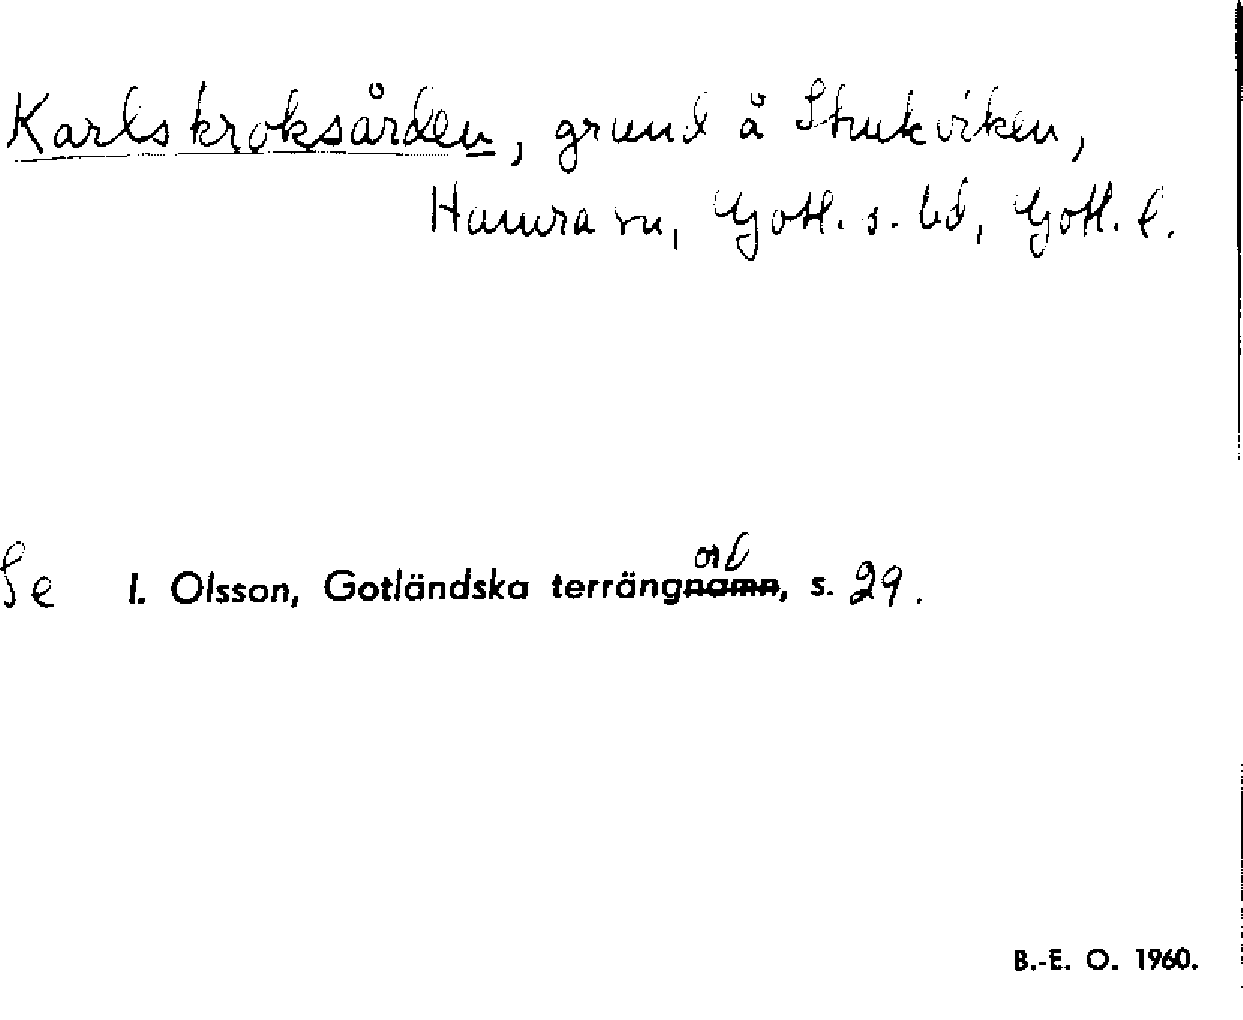 Karlskroksården, grund å Stuckviken,
Hamra sn, Gotl. s. hd, Gotl. l.
Se I. Olsson, Gotländska terrängord, s. 29.
B.-E. O. 1960.